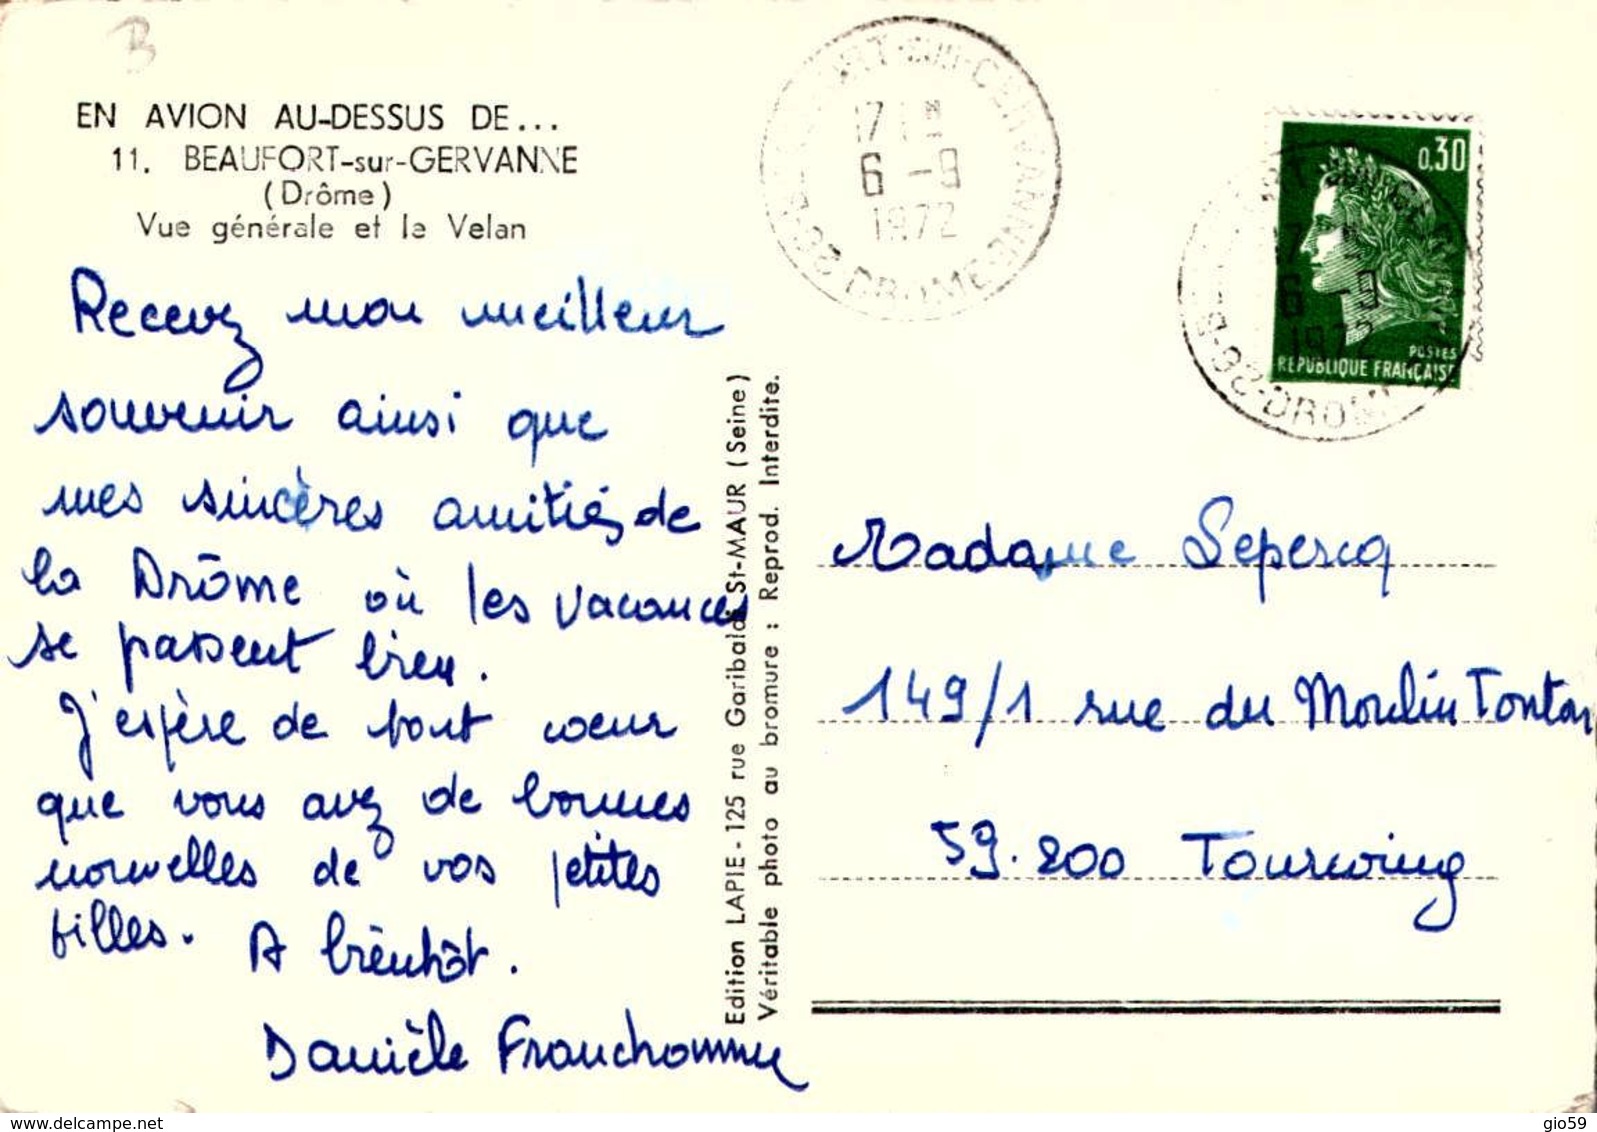 B
EN AVION AU-DESSUS DE...
11. BEAUFORT-sur-GERVANNE
(Drôme)
Vue générale et le Velan
Recevez mon meilleur
souvenir ainsi que
mes sincères amitiés de
la Drôme où les vacances
se passent bien.
J'espère de tout coeur
que vous avez de bonnes
nouvelles de vos petites
filles. A bientôt.
Danièle Franchomme
Edition LAPIE - 125 rue Garibaldi St-MAUR (Seine)
Véritable photo au bromure : Reprod. Interdite.
17 H
6 - 9
1972
26-DROME
0,30
POSTES
REPUBLIQUE FRANÇAISE
6 9
1972
26-DROME
Madame Lepercq
149/1 rue du Moulin Tonton
59.200 Tourcoing
delcampe.net
gio59